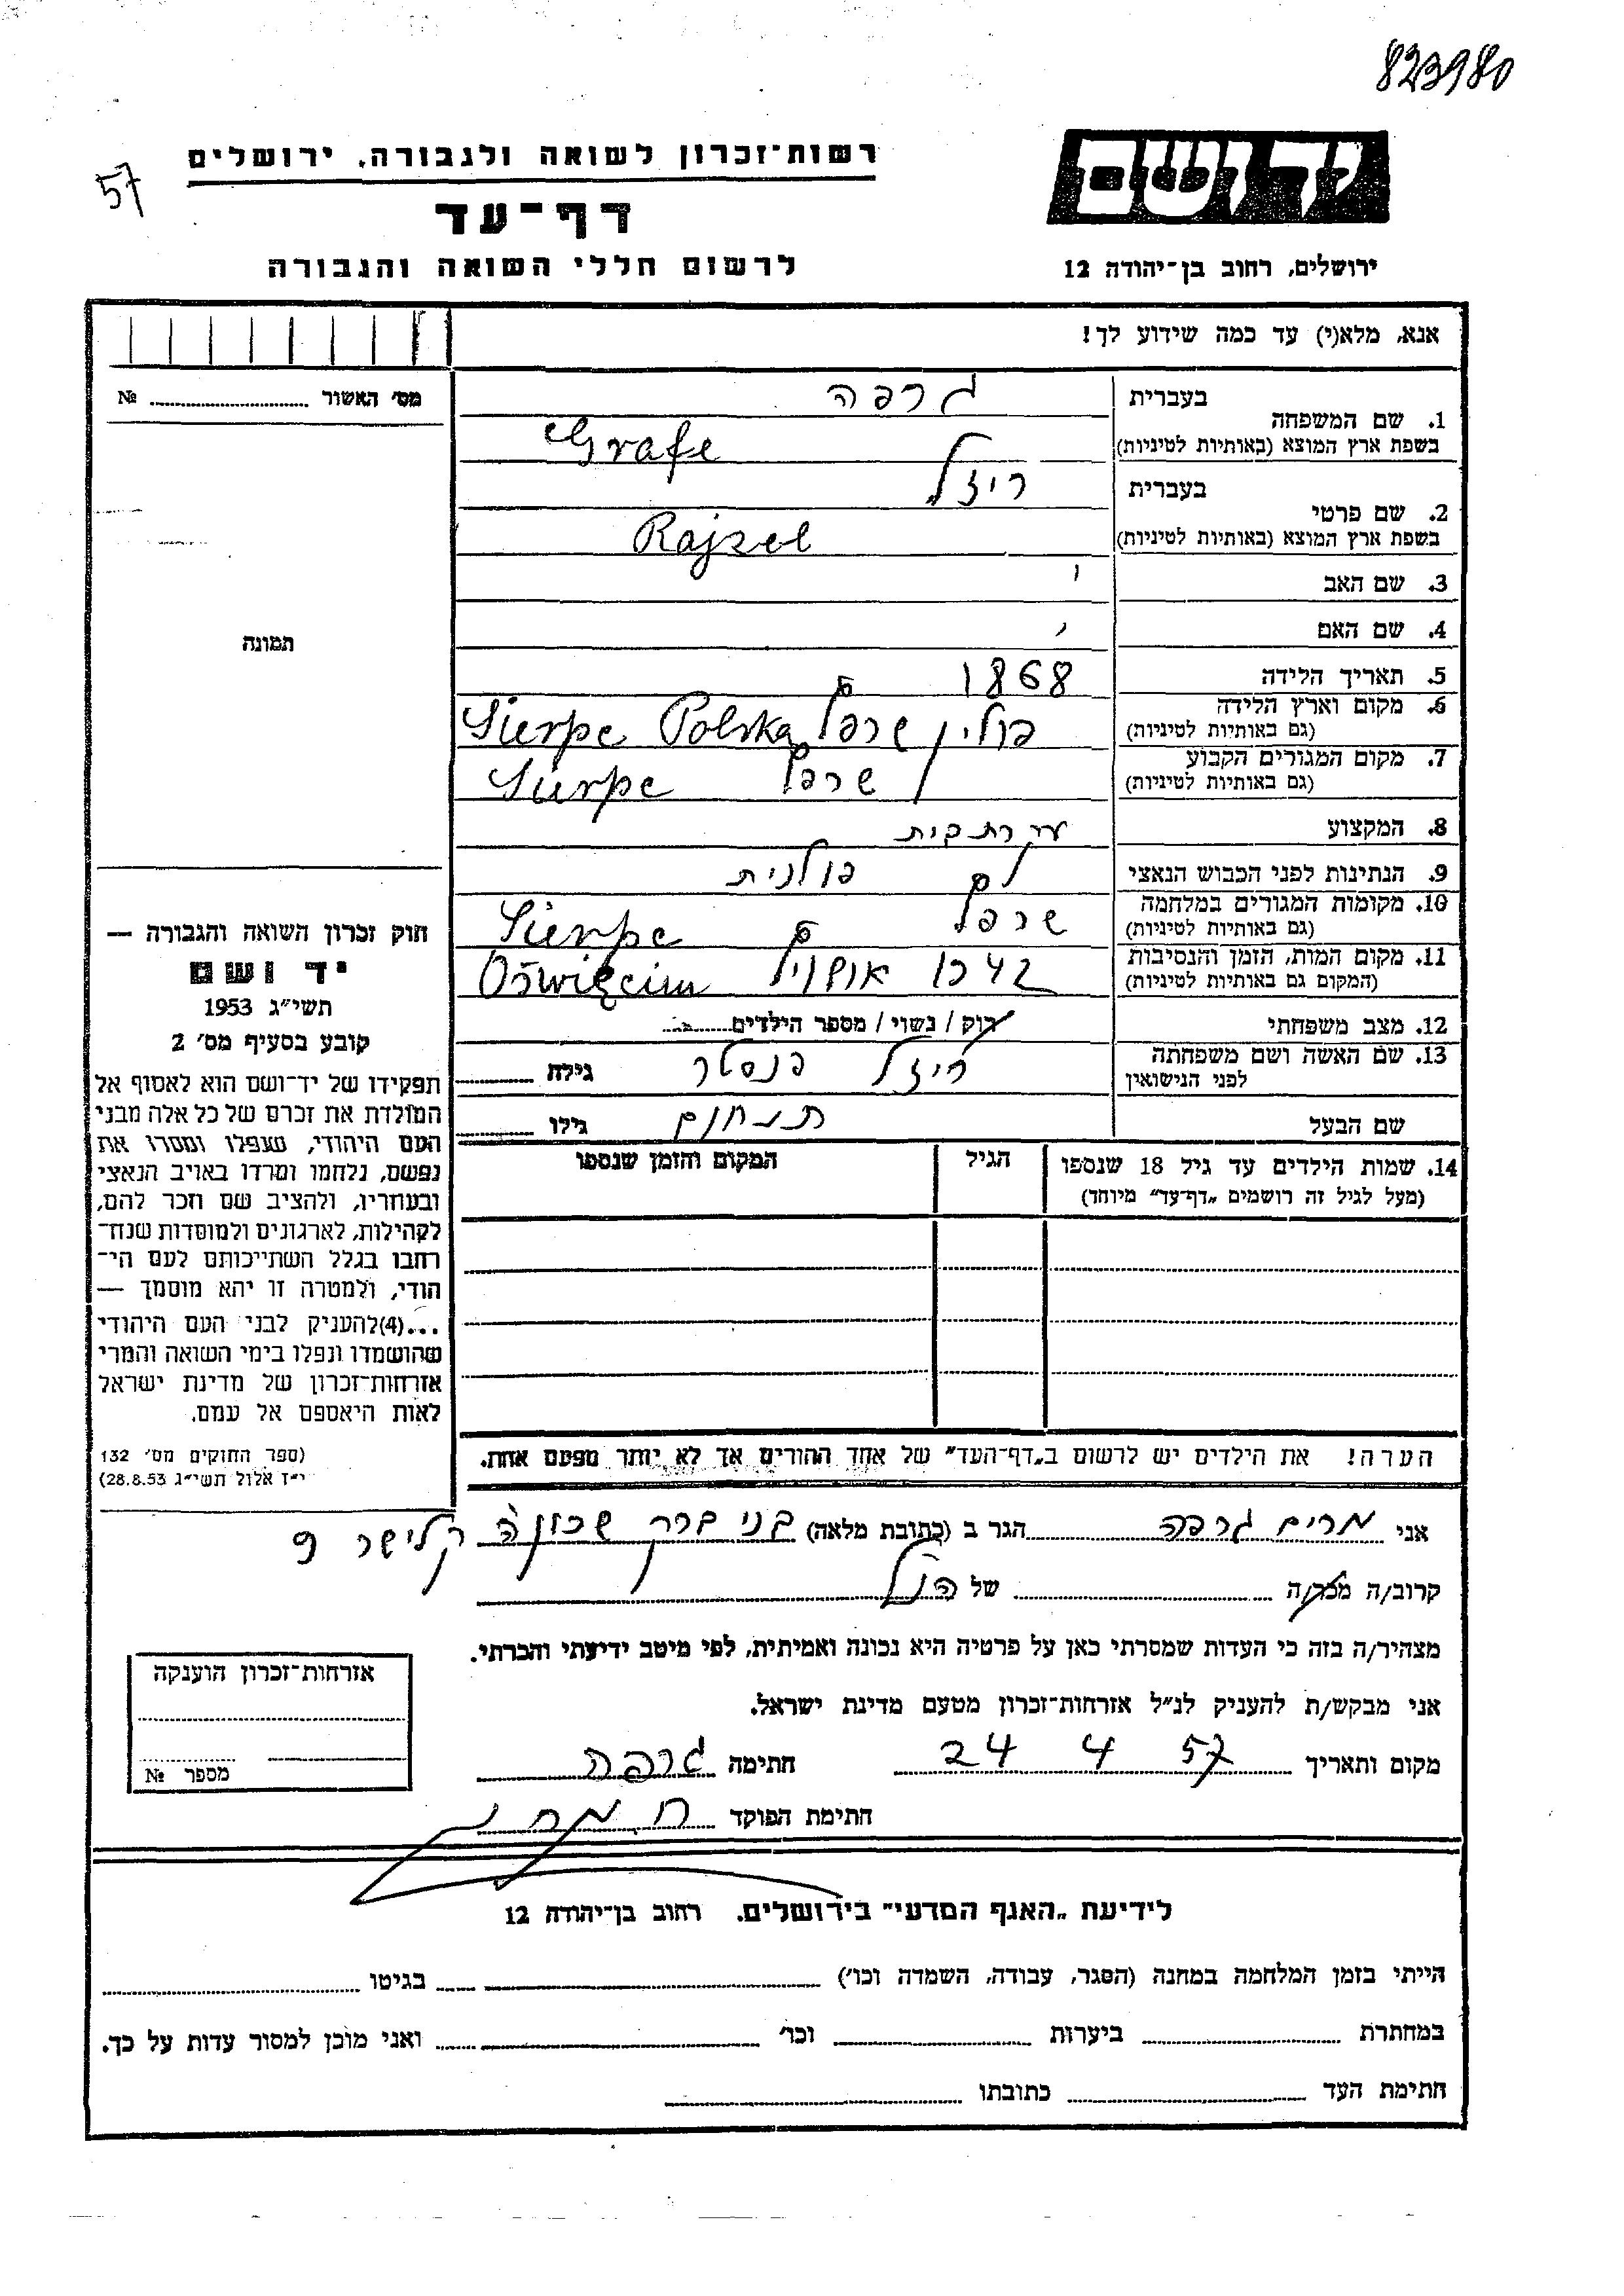 823980
יד ושם
רשות־זכרון לשואה ולגבורה, ירושלים
57
דף־עד
ירושלים, רחוב בן־יהודה 12
לרשום חללי השואה והגבורה
אנא, מלא(י) עד כמה שידוע לך!
מס׳ האשור № 
1. שם המשפחה
בעברית גרפה
בשפת ארץ המוצא (באותיות לטיניות) Grafe
2. שם פרטי
בעברית ריזל
בשפת ארץ המוצא (באותיות לטיניות) Rajzel
3. שם האב
4. שם האם
5. תאריך הלידה 1868
6. מקום וארץ הלידה
(גם באותיות לטיניות) פולין שרפץ Sierpc Polska
7. מקום המגורים הקבוע
(גם באותיות לטיניות) שרפץ Sierpc
8. המקצוע עקרת בית
9. הנתינות לפני הכבוש הנאצי פולנית
10. מקומות המגורים במלחמה
(גם באותיות לטיניות) שרפץ Sierpc
11. מקום המות, הזמן והנסיבות
(המקום גם באותיות לטיניות) 1942 Oświęcim
12. מצב משפחתי רוק / נשוי / מספר הילדים
13. שם האשה ושם משפחתה
לפני הנישואין ריזל פנסטר גילה
שם הבעל תנחום גילו
14. שמות הילדים עד גיל 18 שנספו
(מעל לגיל זה רושמים „דף־עד״ מיוחד)
הגיל
המקום והזמן שנספו
הערה! את הילדים יש לרשום ב„דף־העד״ של אחד ההורים אך לא יותר מפעם אחת.
תמונה
חוק זכרון השואה והגבורה —
יד ושם
תשי״ג 1953
קובע בסעיף מס׳ 2
תפקידו של יד־ושם הוא לאסוף אל
המולדת את זכרם של כל אלה מבני
העם היהודי, שנפלו ומסרו את
נפשם, נלחמו ומרדו באויב הנאצי
ובעוזריו, ולהציב שם וזכר להם,
לקהילות, לארגונים ולמוסדות שנח־
רחבו בגלל השתייכותם לעם הי־
הודי, ולמטרה זו יהא מוסמך —
...(4)להעניק לבני העם היהודי
שהושמדו ונפלו בימי השואה והמרי
אזרחות־זכרון של מדינת ישראל
לאות היאספם אל עמם.
(ספר החוקים מס׳ 132
י״ז אלול תשי״ג 28.8.53)
אני מרים גרפה הגר ב (כתובת מלאה) בני ברק שכונה קלישר 9
קרוב/ה מכר/ה של הנ״ל
מצהיר/ה בזה כי העדות שמסרתי כאן על פרטיה היא נכונה ואמיתית, לפי מיטב ידיעתי והכרתי.
אני מבקש/ת להעניק לנ״ל אזרחות־זכרון מטעם מדינת ישראל.
מקום ותאריך 24 4 57 חתימה גרפה
חתימת הפוקד
אזרחות־זכרון הוענקה
מספר №
לידיעת „האגף המדעי״ בירושלים. רחוב בן־יהודה 12
הייתי בזמן המלחמה במחנה (הסגר, עבודה, השמדה וכו׳) בגיטו
במחתרת ביערות וכו׳ ואני מוכן למסור עדות על כך.
חתימת העד כתובתו